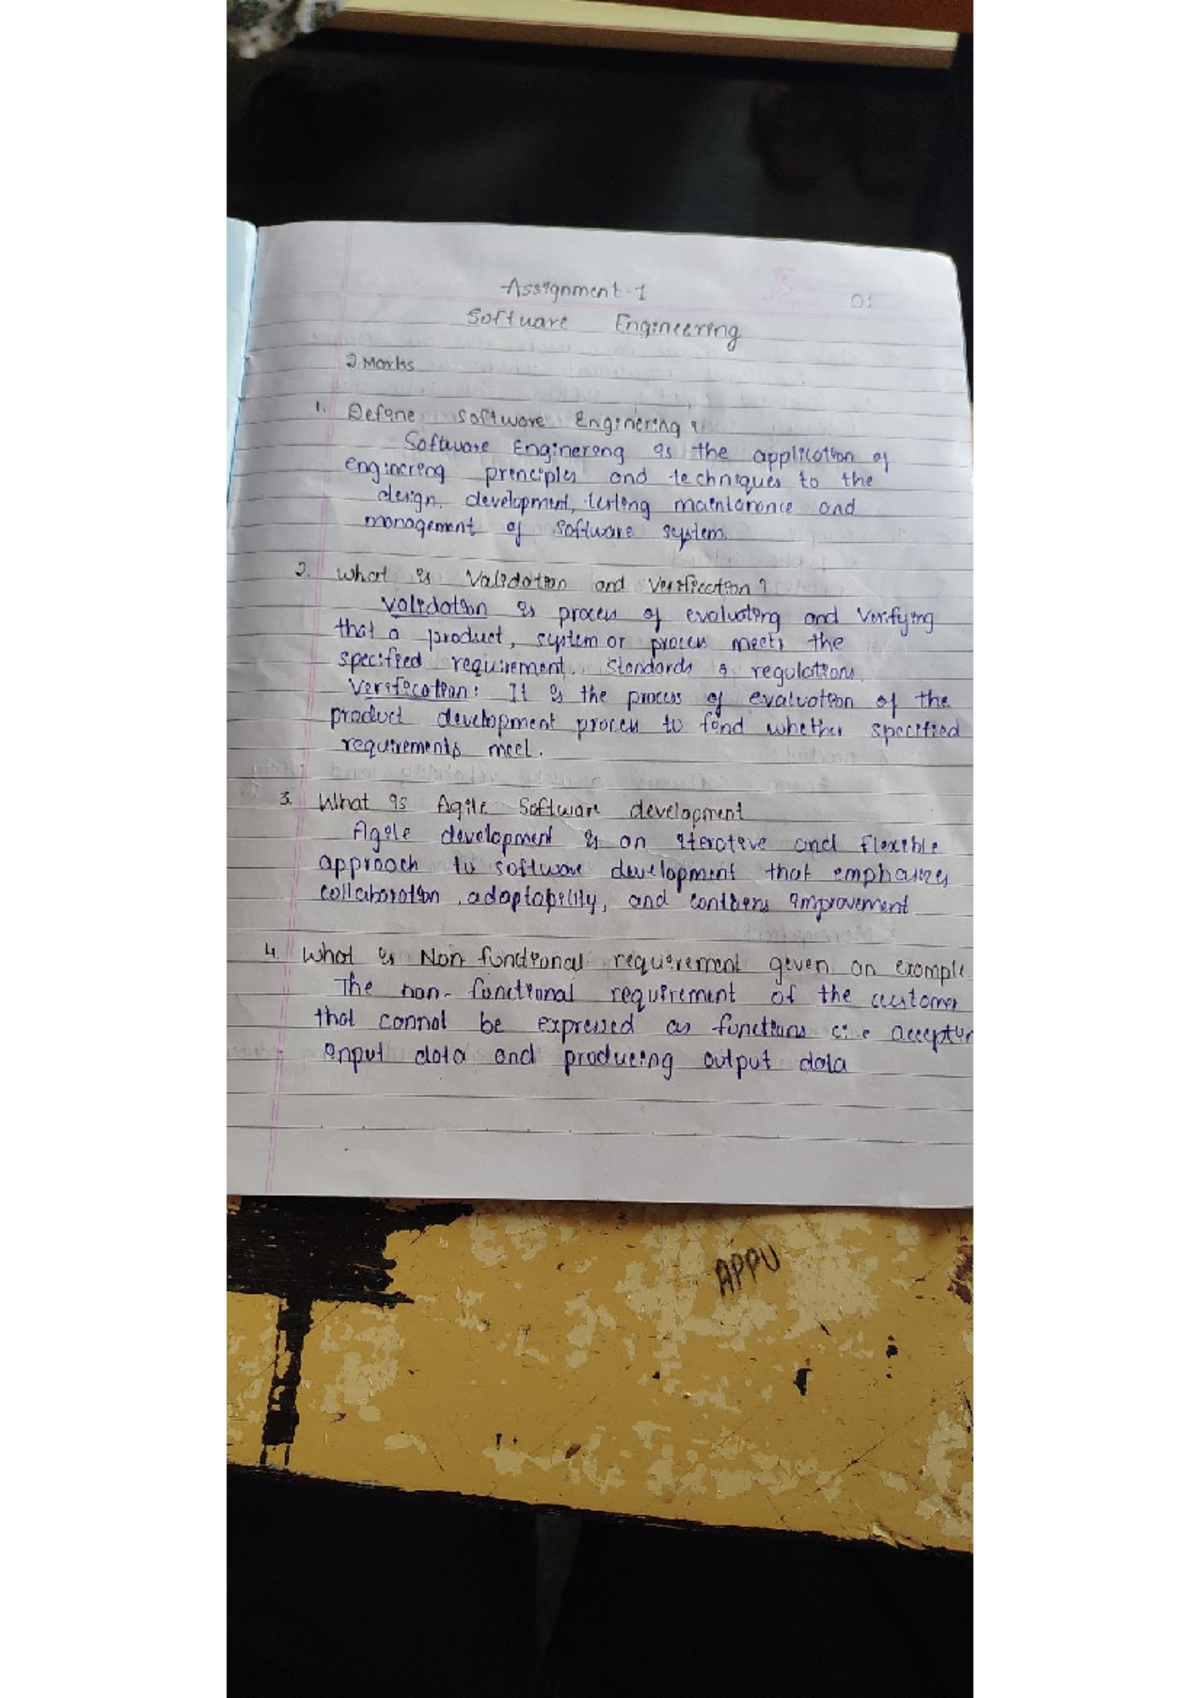 Assignment-1
01
Software Engineering
2 Marks
1. Define Software Enginering ?
Software Enginerong is the application of
enginering principles and techniques to the
design. development, testing maintanance and
management of Software system.
2. What is Validation and Verification?
Validation is process of evaluating and Verifying
that a product, system or process meets the
specified requirement. Standards & regulations.
Verification: It is the process of evaluation of the
product development process to find whether specified
requirements meet.
3. What is Agile Software development
Agile development is an iterative and flexible
approach to software development that emphasizes
collaboration, adaptability, and improvement
4. What is Non functional requirement given an example
The non-functional requirement of the customer
that cannot be expressed as functions i.e
input data and producing output data
APPU